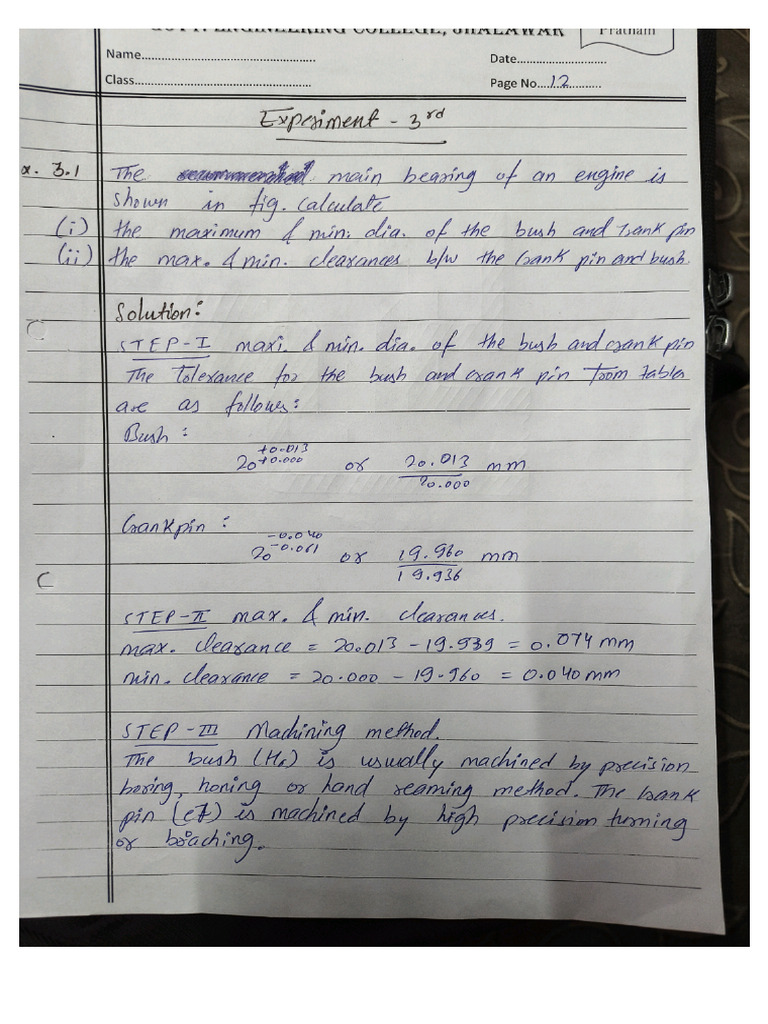 GOVT. ENGINEERING COLLEGE, JHALAWAR
Pratham
Name
Date
Class
Page No. 12
Experiment - 3rd
x. 3.1 The main bearing of an engine is
shown in fig. calculate
(i) the maximum & min. dia. of the bush and crank pin
(ii) the max. & min. clearances b/w the crank pin and bush.
Solution:
STEP-I maxi. & min. dia. of the bush and crank pin
The Tolerance for the bush and crank pin from tables
are as follows:
Bush:
20 +0.013 +0.000 or 20.013 / 20.000 mm
Crank pin:
20 -0.040 -0.061 or 19.960 / 19.936 mm
STEP-II max. & min. clearances.
max. clearance = 20.013 - 19.939 = 0.074 mm
min. clearance = 20.000 - 19.960 = 0.040 mm
STEP-III Machining method.
The bush (H6) is usually machined by precision
boring, honing or hand reaming method. The crank
pin (e7) is machined by high precision turning
or broaching.